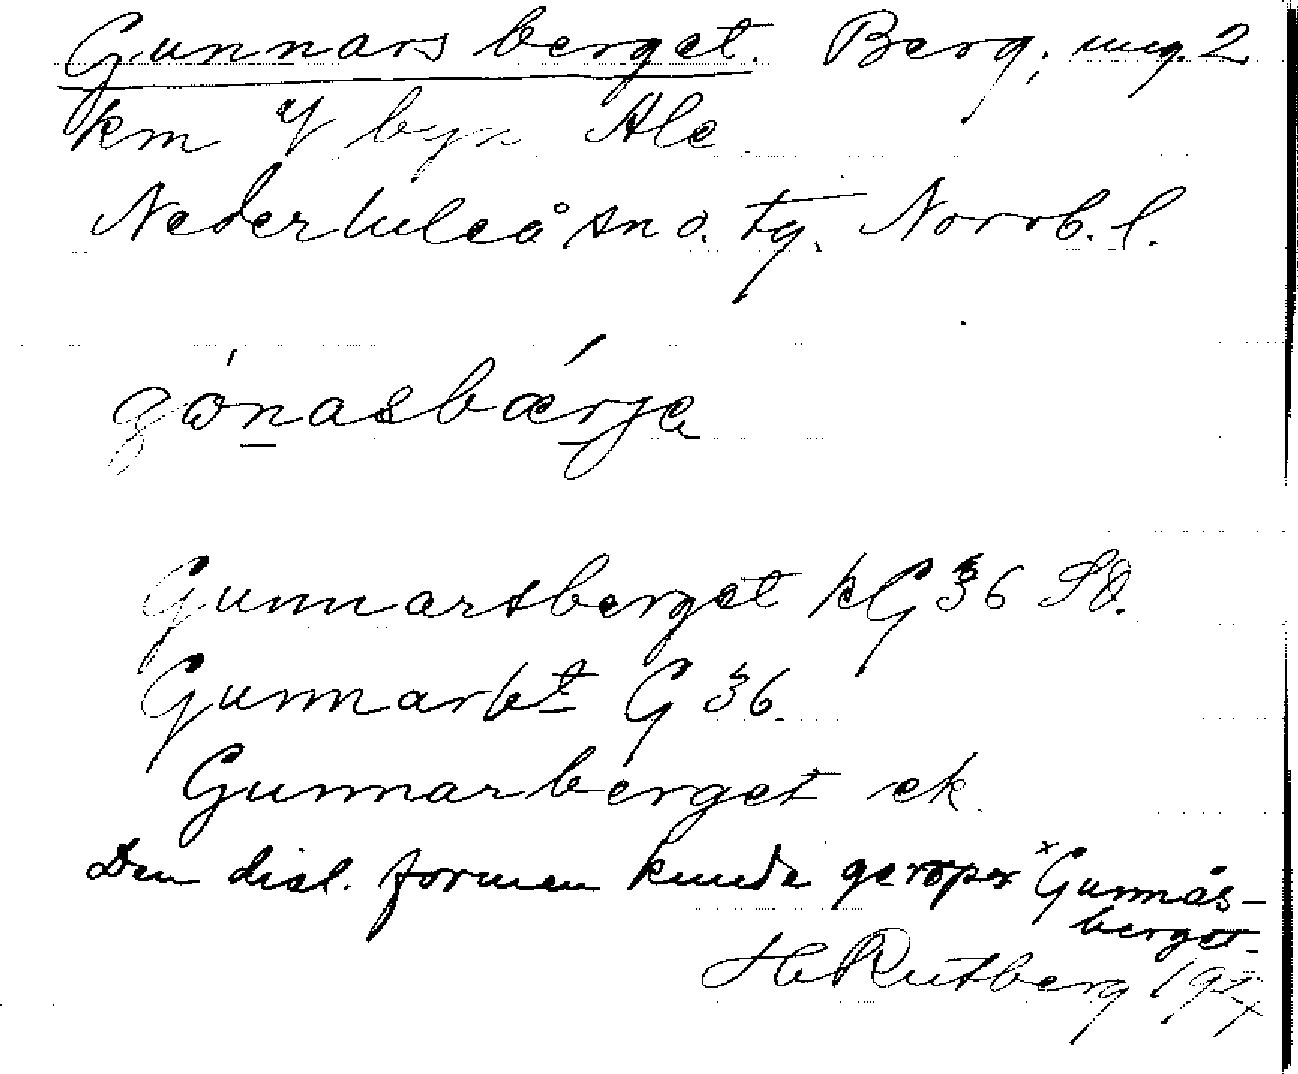 Gunnarsberget. Berg, ung. 2
km Y byn Ale
Nederluleå sn o. tg. Norrb. l.
gónasbǽrje
Gunnarsberget kG 36 SO.
Gunnarbt G 36.
Gunnarberget ek.
Den dial. formen kunde
ˣGunnås-
berget.
H Rutberg